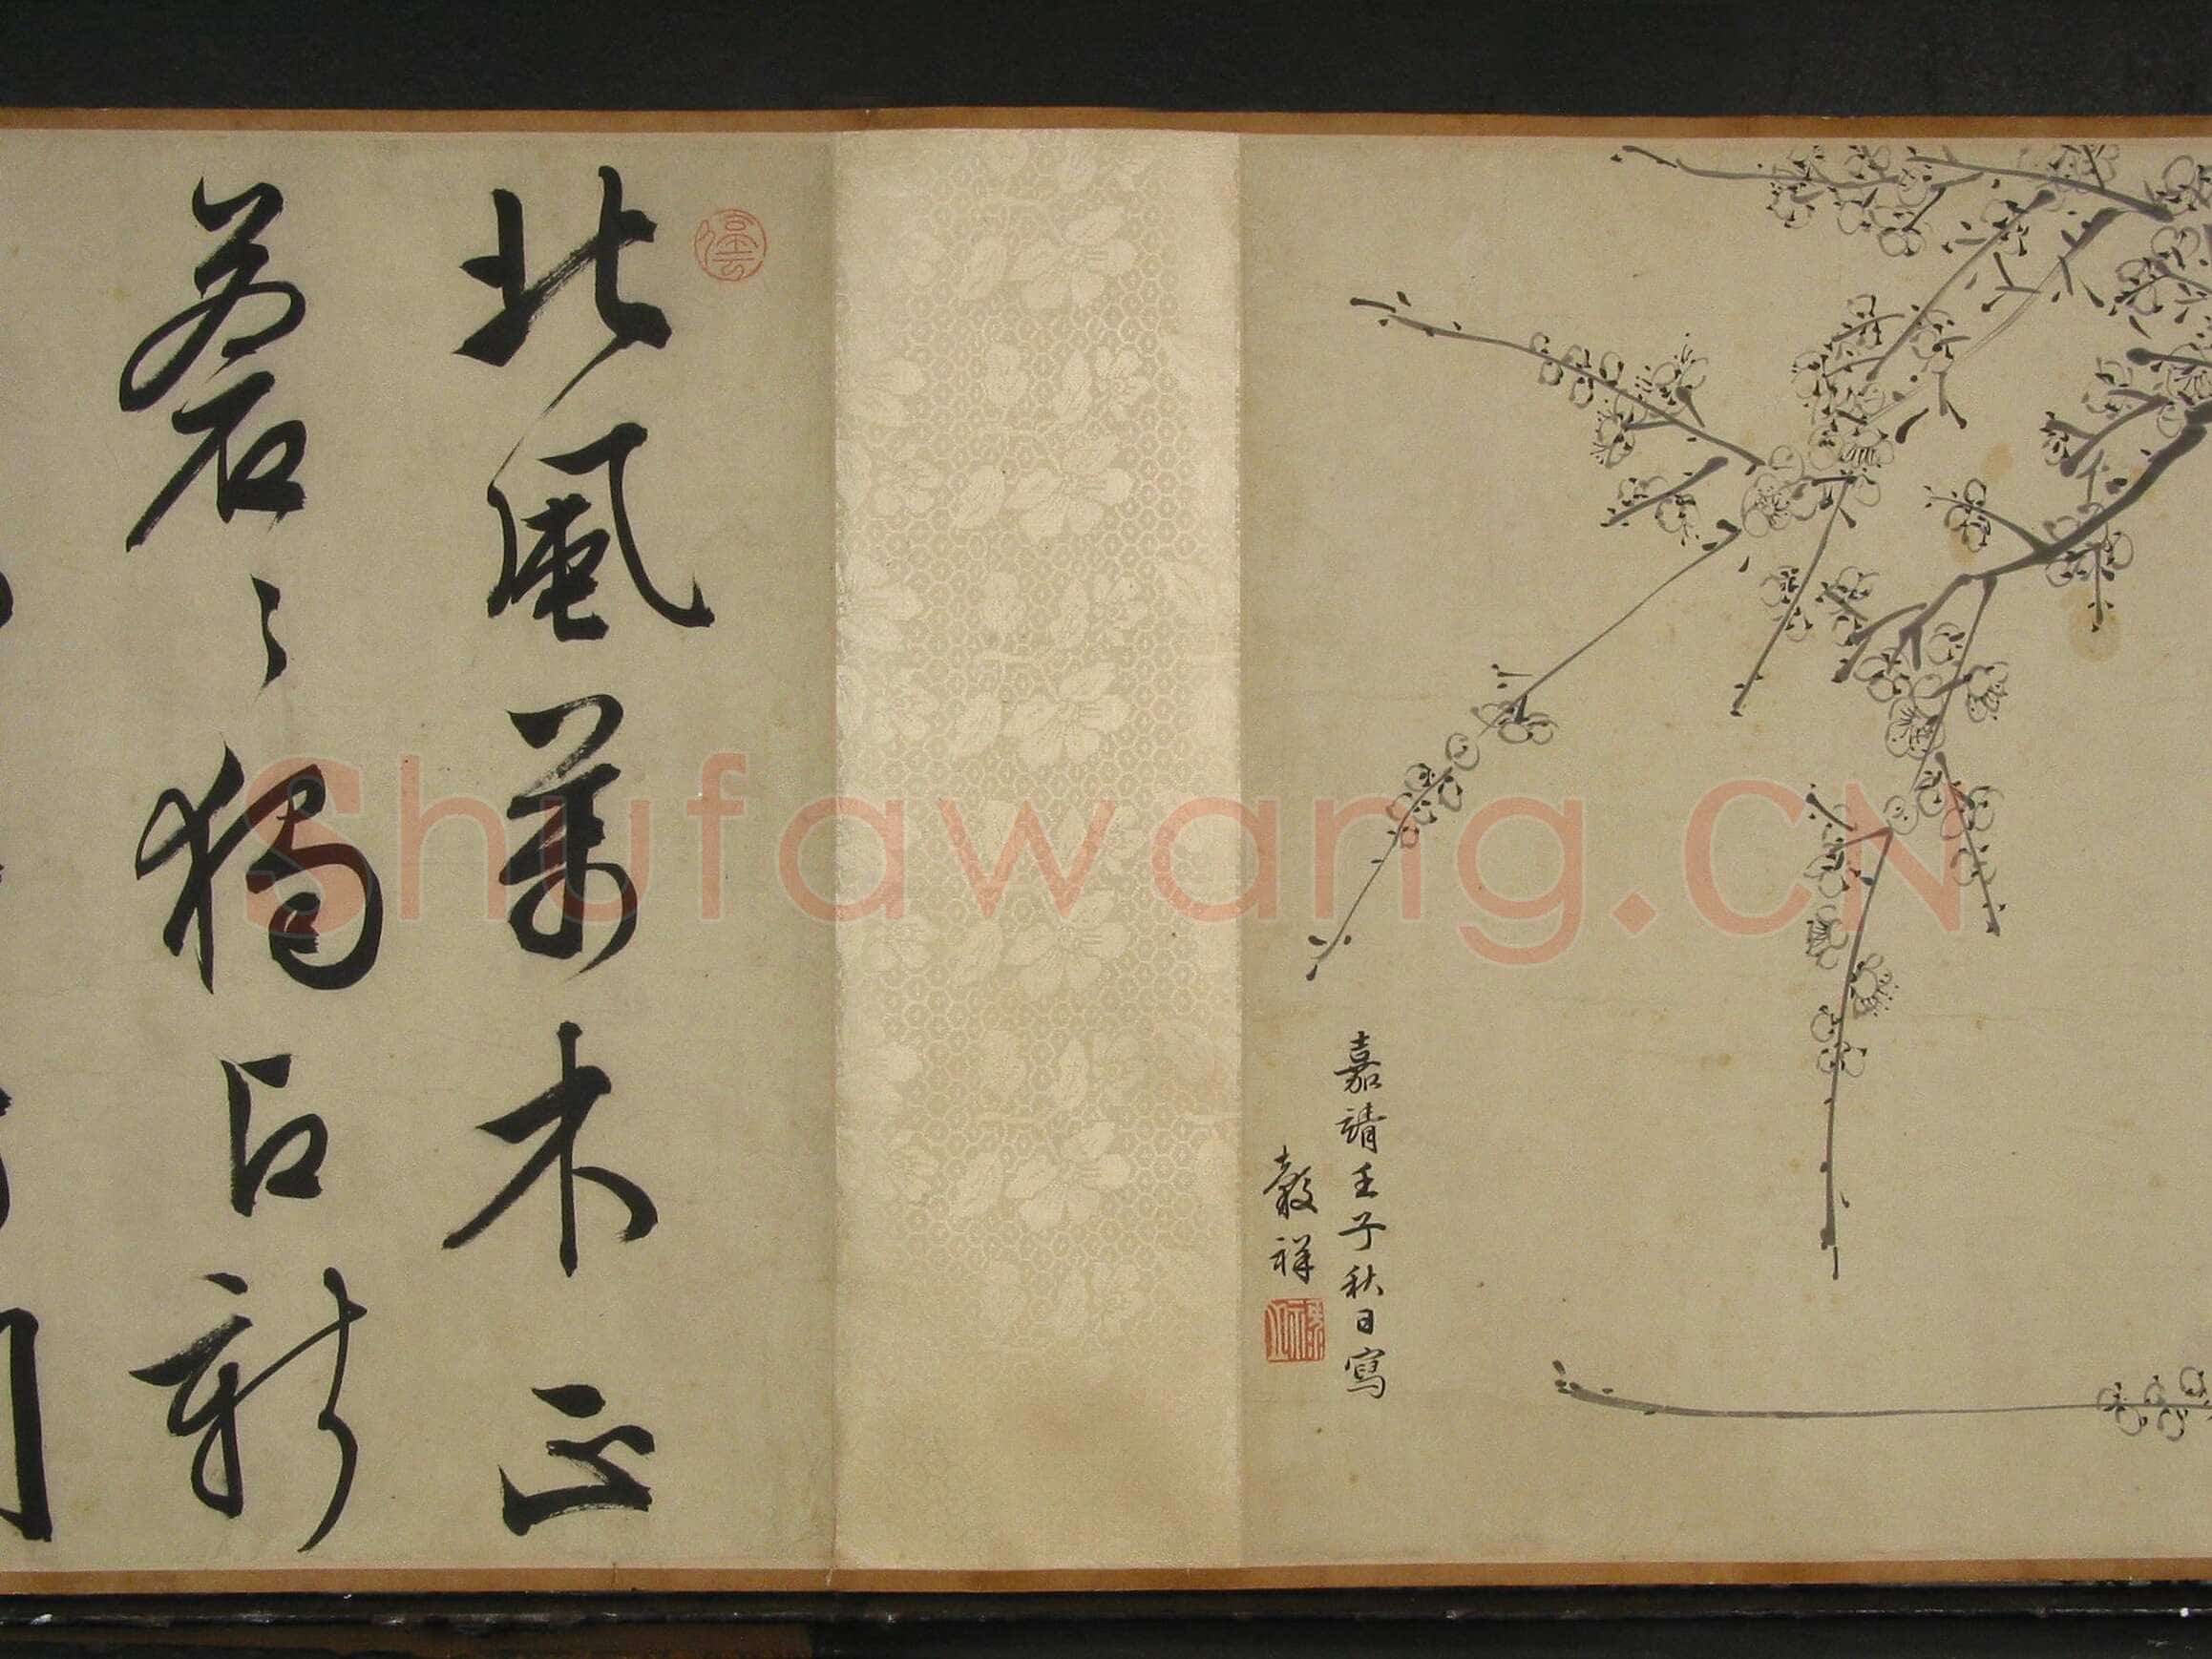 嘉靖壬子秋日寫
穀祥
北風萬木正
蒼〻獨占新
Shufawang.CN